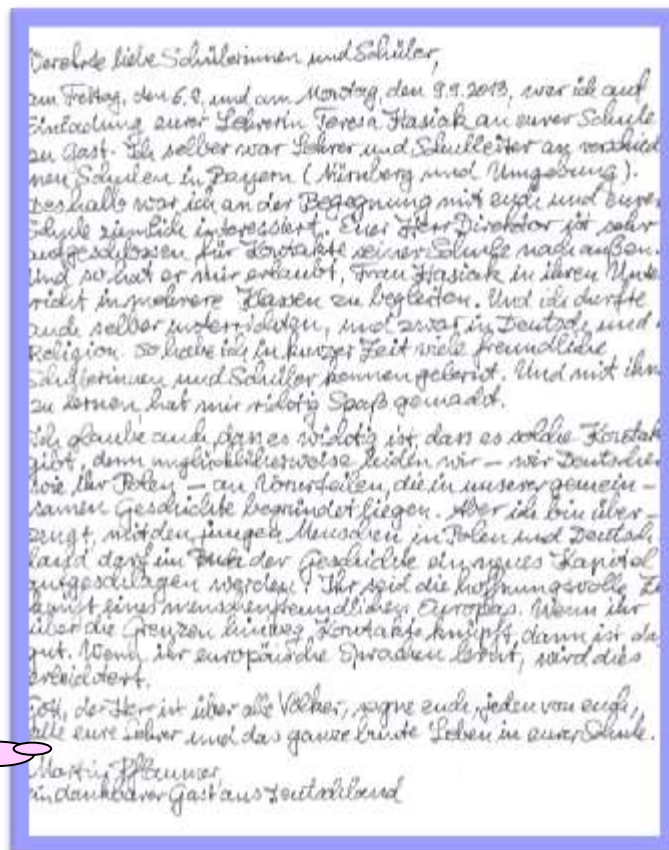 Verehrte liebe Schülerinnen und Schüler,
am Freitag, den 6.9. und am Montag, den 9.9.2013, war ich auf
Einladung eurer Lehrerin Teresa Hasiak an eurer Schule
zu Gast. Ich selber war Lehrer und Schulleiter an verschied
nen Schulen in Bayern (Nürnberg und Umgebung).
Deshalb war ich an der Begegnung mit euch und eurer
Schule ziemlich interessiert. Euer Herr Direktor ist sehr
aufgeschlossen für Kontakte seiner Schule nach außen.
Und so hat er mir erlaubt, Frau Hasiak in ihren Unte
richt in mehrere Klassen zu begleiten. Und ich durfte
auch selber unterrichten, und zwar in Deutsch und
Religion. So habe ich in kurzer Zeit viele freundliche
Schülerinnen und Schüler kennen gelernt. Und mit ihn
zu lernen, hat mir richtig Spaß gemacht.
Ich glaube auch, dass es wichtig ist, dass es solche Kontak
gibt, denn unglücklicherweise leiden wir – wir Deutsche
wie ihr Polen – an Vorurteilen, die in unserer gemein-
samen Geschichte begründet liegen. Aber ich bin über-
zeugt, mit den jungen Menschen in Polen und Deutsch
land darf im Buch der Geschichte ein neues Kapitel
aufgeschlagen werden! Ihr seid die hoffnungsvolle Zu
kunft eines menschenfreundlichen Europas. Wenn ihr
über die Grenzen hinweg Kontakte knüpft, dann ist das
gut. Wenn ihr europäische Sprachen lernt, wird dies
erleichtert.
Gott, der Herr ist über alle Völker, segne euch, jeden von euch,
alle eure Lehrer und das ganze bunte Leben in eurer Schule.
Martin
ein dankbarer Gast aus Deutschland